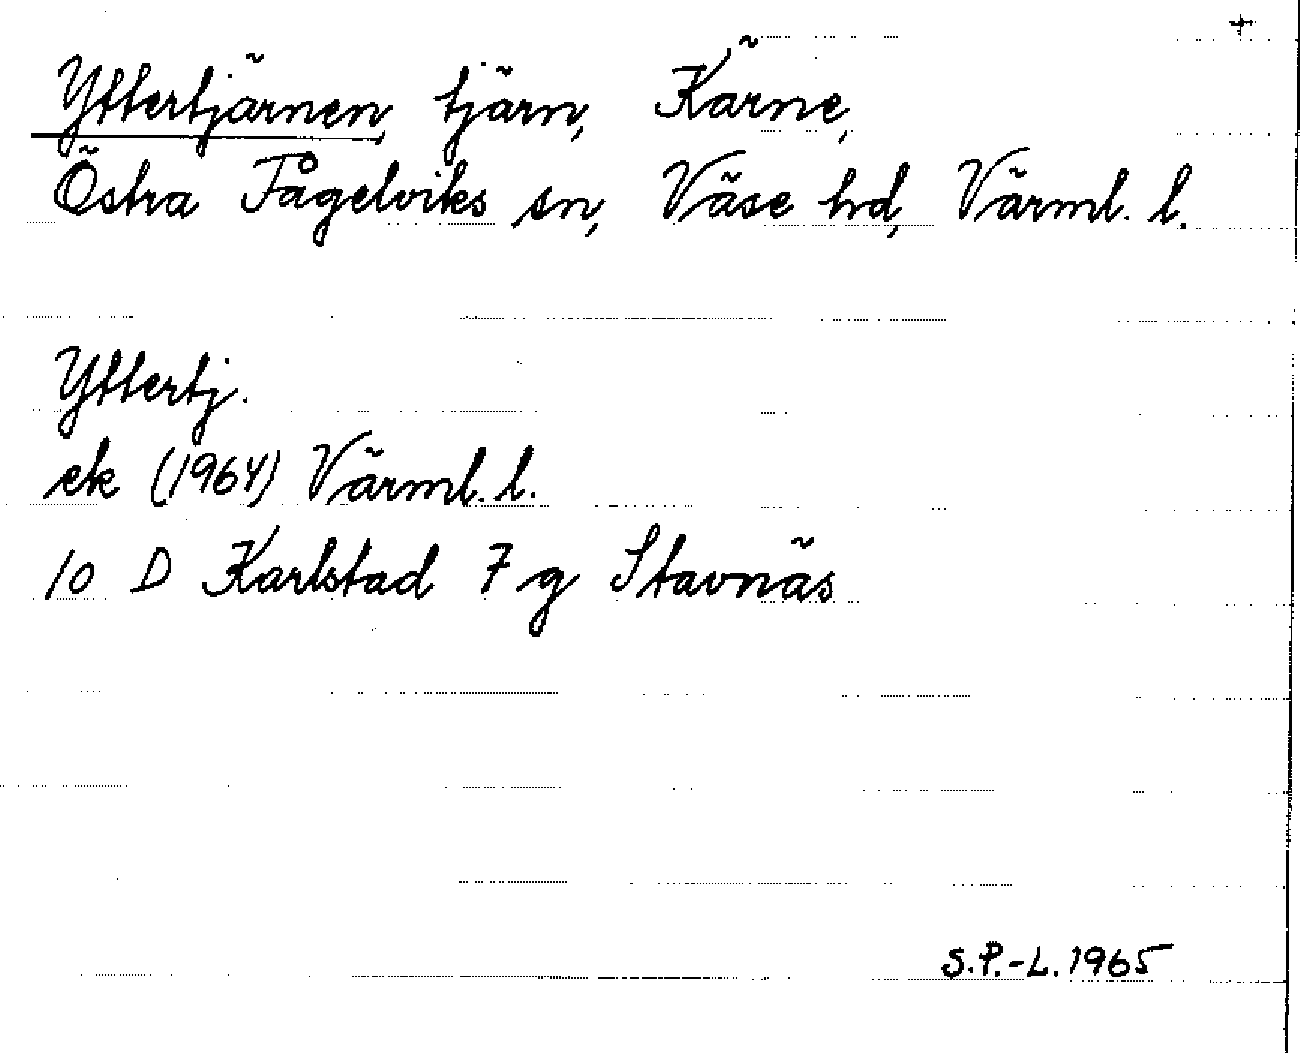 +
Yttertjärnen, tjärn, Kärne,
Östra Fågelviks sn, Väse hd, Värml. l.
Yttertj.
ek (1964) Värml. l.
10 D Karlstad 7 g Stavnäs
S.P.-L. 1965